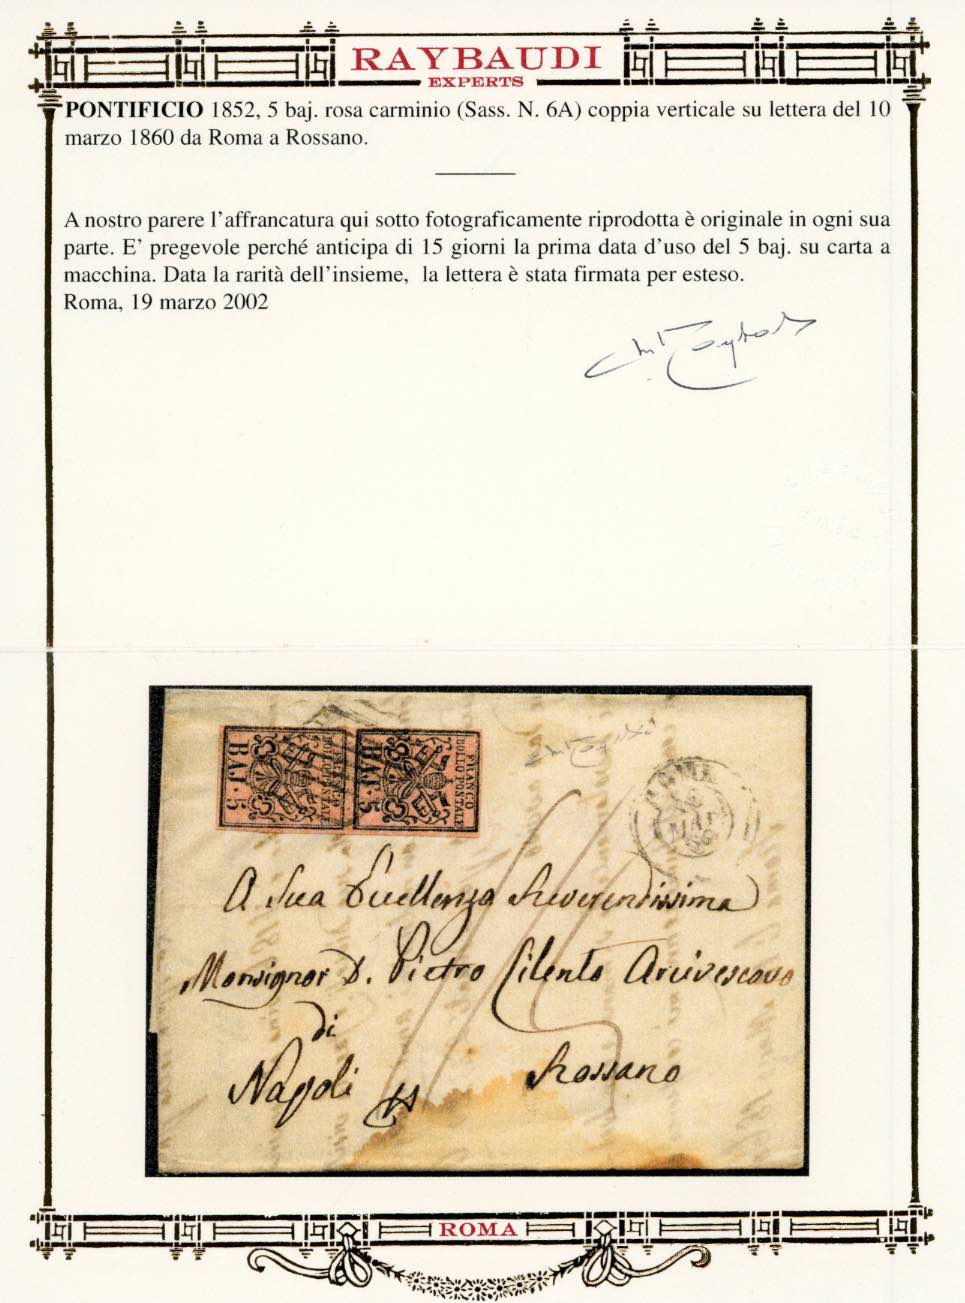 RAYBAUDI
EXPERTS
PONTIFICIO 1852, 5 baj. rosa carminio (Sass. N. 6A) coppia verticale su lettera del 10
marzo 1860 da Roma a Rossano.
A nostro parere l'affrancatura qui sotto fotograficamente riprodotta è originale in ogni sua
parte. E' pregevole perché anticipa di 15 giorni la prima data d'uso del 5 baj. su carta a
macchina. Data la rarità dell'insieme, la lettera è stata firmata per esteso.
Roma, 19 marzo 2002
FRANCO
BOLLO POSTALE
BAJ. 5
FRANCO
BOLLO POSTALE
BAJ. 5
ROMA
A Sua Eccellenza Reverendissima
Monsignor D. Pietro Cilento Arcivescovo
di
Napoli Rossano
ROMA